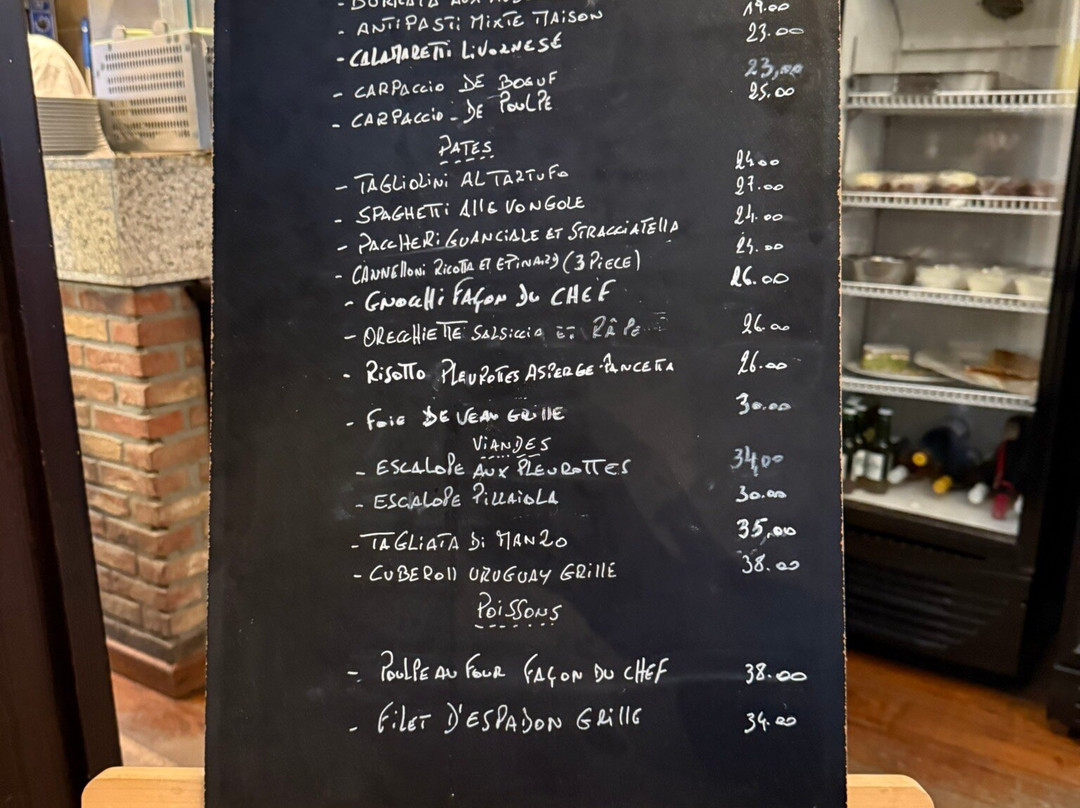 - ANTIPASTI MIXTE MAISON 19.00
- CALAMARETTI LIVORNESE 23.00
- CARPACCIO DE BOEUF 23,00
- CARPACCIO DE POULPE 25.00
PATES
- TAGLIOLINI AL TARTUFO
- SPAGHETTI ALLE VONGOLE 27.00
- PACCHERI GUANCIALE ET STRACCIATELLA
- CANNELLONI RICOTTA ET EPINARD (3 PIECE)
- GNOCCHI FAÇON DU CHEF 26.00
- ORECCHIETTE SALSICCIA ET RÂPE 26.00
- RISOTTO PLEUROTES ASPERGE PANCETTA 26.00
- FOIE DE VEAU GRILLE 30.00
VIANDES
- ESCALOPE AUX PLEUROTTES 34,00
- ESCALOPE PIZZAIOLA 30.00
- TAGLIATA DI MANZO 35,00
- CUBEROLL URUGUAY GRILLE 38.00
POISSONS
- POULPE AU FOUR FAÇON DU CHEF 38.00
- FILET D'ESPADON GRILLE 34.00